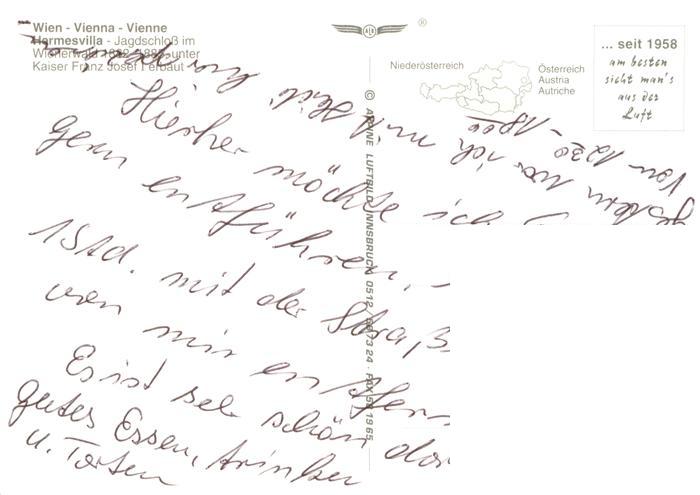 Wien - Vienna - Vienne
Hermesvilla - Jagdschloß im
Wienerwald 1882-1886 unter
Kaiser Franz Josef I erbaut
®
Niederösterreich
Österreich
Austria
Autriche
... seit 1958
am besten
sieht man's
aus der
Luft
© ALPINE LUFTBILD INNSBRUCK 0512/ 24 · FAX 65
Hierher möchte ich
gern entführen,
1 Std. mit der Straß
von mir entfern
Es ist sehr schön dor
gutes Essen, trinken
u. Torten
gestern war ich mit
Von 12 30 - 18 00